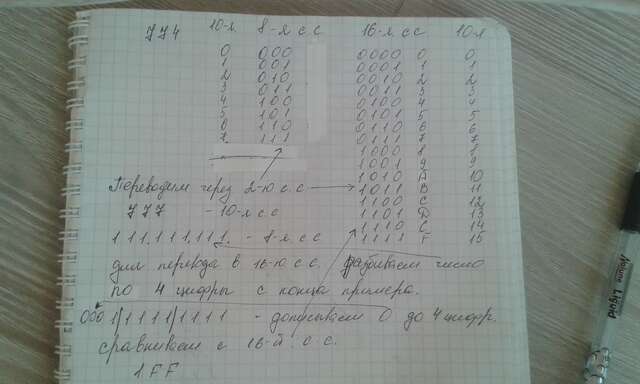 774 10-я 8-я с с 16-я сс 10-я
0 000 0000 0 0
1 001 0001 1 1
2 010 0010 2 2
3 011 0011 3 3
4 100 0100 4 4
5 101 0101 5 5
6 110 0110 6 6
7 111 0111 7 7
1000 8 8
1001 9 9
1010 A 10
Переводим через 2-ю с.с 1011 B 11
777 - 10-я с с 1100 C 12
1101 D 13
1110 C 14
111.111.111. - 8-я с с 1111 F 15
для перевода в 16-ю с.с. разбиваем число
по 4 цифры с конца примера.
0001/1111/1111 - дописываем 0 до 4 цифр.
сравниваем с 16-й с.с.
1FF
Liquid